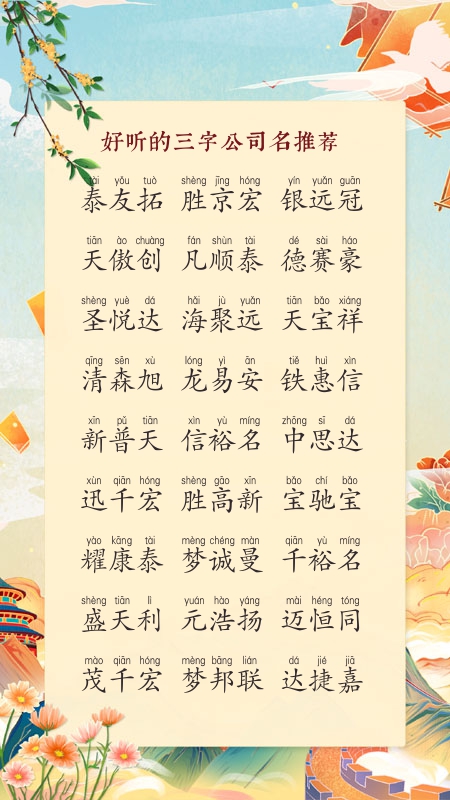 好听的三字公司名推荐
tài yǒu tuò shèng jīng hóng yín yuǎn guān
泰友拓 胜京宏 银远冠
tiān ào chuàng fán shùn tài dé sài háo
天傲创 凡顺泰 德赛豪
shèng yuè dá hǎi jù yuǎn tiān bǎo xiáng
圣悦达 海聚远 天宝祥
qīng sēn xù lóng yì ān tiě huì xìn
清森旭 龙易安 铁惠信
xīn pǔ tiān xìn yù míng zhōng sī dá
新普天 信裕名 中思达
xùn qiān hóng shèng gāo xīn bǎo chí bǎo
迅千宏 胜高新 宝驰宝
yào kāng tài mèng chéng màn qiān yù míng
耀康泰 梦诚曼 千裕名
shèng tiān lì yuán hào yáng mài héng tóng
盛天利 元浩扬 迈恒同
mào qiān hóng mèng bāng lián dá jié jiā
茂千宏 梦邦联 达捷嘉